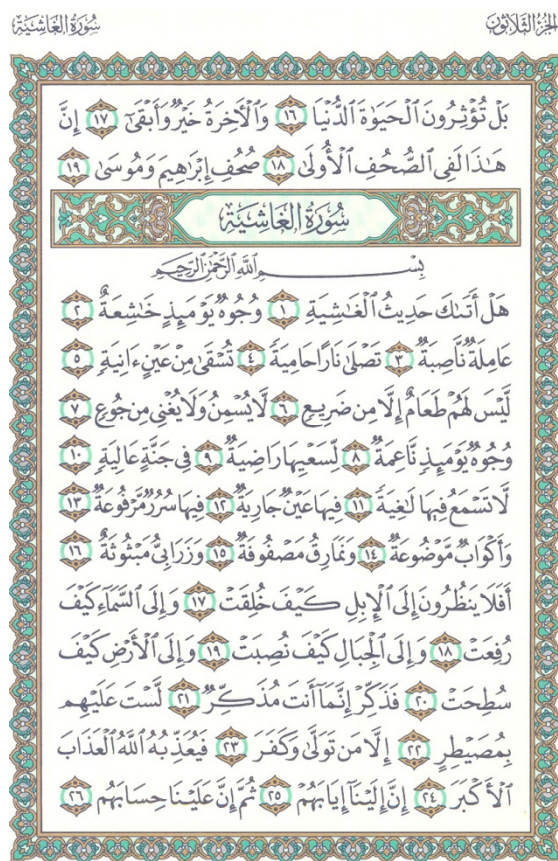 الجزء الثلاثون
سُورَةُ الغَاشِيَة
بَلْ تُؤْثِرُونَ ٱلْحَيَوٰةَ ٱلدُّنْيَا ١٦ وَٱلْأَخِرَةُ خَيْرٌ وَأَبْقَىٰٓ ١٧ إِنَّ
هَـٰذَا لَفِى ٱلصُّحُفِ ٱلْأُولَىٰ ١٨ صُحُفِ إِبْرَٰهِيمَ وَمُوسَىٰ ١٩
سُورَةُ الغَاشِيَة
بِسْمِ ٱللَّهِ ٱلرَّحْمَـٰنِ ٱلرَّحِيمِ
هَلْ أَتَىٰكَ حَدِيثُ ٱلْغَـٰشِيَةِ ١ وُجُوهٌ يَوْمَئِذٍ خَـٰشِعَةٌ ٢
عَامِلَةٌ نَّاصِبَةٌ ٣ تَصْلَىٰ نَارًا حَامِيَةً ٤ تُسْقَىٰ مِنْ عَيْنٍ ءَانِيَةٍ ٥
لَّيْسَ لَهُمْ طَعَامٌ إِلَّا مِن ضَرِيعٍ ٦ لَّا يُسْمِنُ وَلَا يُغْنِى مِن جُوعٍ ٧
وُجُوهٌ يَوْمَئِذٍ نَّاعِمَةٌ ٨ لِّسَعْيِهَا رَاضِيَةٌ ٩ فِى جَنَّةٍ عَالِيَةٍ ١٠
لَّا تَسْمَعُ فِيهَا لَـٰغِيَةً ١١ فِيهَا عَيْنٌ جَارِيَةٌ ١٢ فِيهَا سُرُرٌ مَّرْفُوعَةٌ ١٣
وَأَكْوَابٌ مَّوْضُوعَةٌ ١٤ وَنَمَارِقُ مَصْفُوفَةٌ ١٥ وَزَرَابِىُّ مَبْثُوثَةٌ ١٦
أَفَلَا يَنظُرُونَ إِلَى ٱلْإِبِلِ كَيْفَ خُلِقَتْ ١٧ وَإِلَى ٱلسَّمَآءِ كَيْفَ
رُفِعَتْ ١٨ وَإِلَى ٱلْجِبَالِ كَيْفَ نُصِبَتْ ١٩ وَإِلَى ٱلْأَرْضِ كَيْفَ
سُطِحَتْ ٢٠ فَذَكِّرْ إِنَّمَآ أَنتَ مُذَكِّرٌ ٢١ لَّسْتَ عَلَيْهِم
بِمُصَيْطِرٍ ٢٢ إِلَّا مَن تَوَلَّىٰ وَكَفَرَ ٢٣ فَيُعَذِّبُهُ ٱللَّهُ ٱلْعَذَابَ
ٱلْأَكْبَرَ ٢٤ إِنَّ إِلَيْنَآ إِيَابَهُمْ ٢٥ ثُمَّ إِنَّ عَلَيْنَا حِسَابَهُم ٢٦